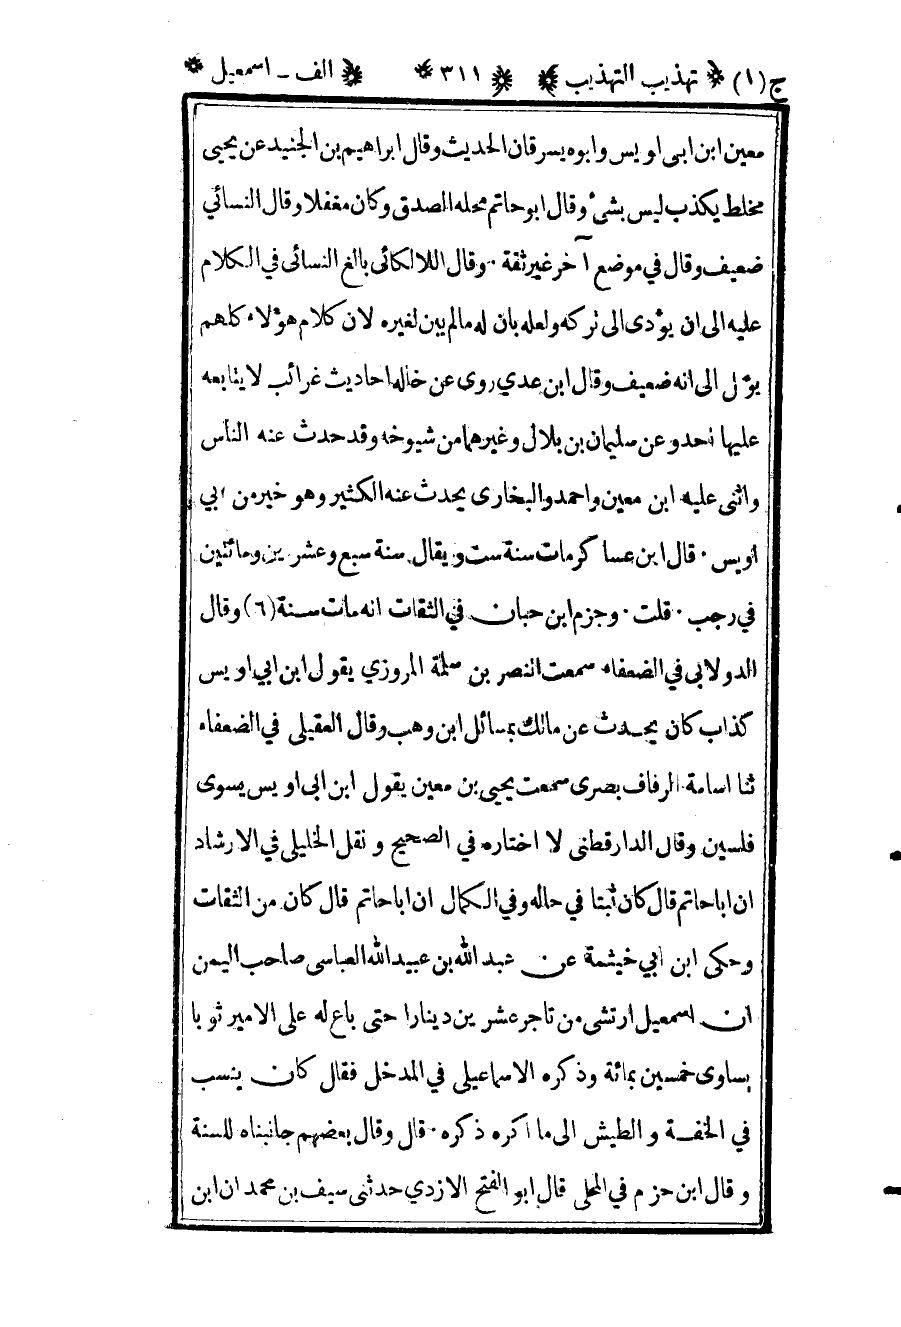 ج (١) ﴿ تهذيب التهذيب ﴾ ﴿ ٣١١ ﴾ ﴿ الف ـ اسمعيل ﴾
معين ابن ابى اويس وابوه يسرقان الحديث وقال ابراهيم بن الجنيد عن يحيى
مخلط يكذب ليس بشئ وقال ابو حاتم محله الصدق وكان مغفلا وقال النسائي
ضعيف وقال في موضع آخر غير ثقة ٠ وقال اللالكائى بالغ النسائى في الكلام
عليه الى ان يؤدى الى تركه ولعله بان له مالم يبن لغيره لان كلام هؤلاء كلهم
يؤل الى انه ضعيف وقال ابن عدي روى عن خاله احاديث غرائب لا يتابعه
عليها احد وعن سليمان بن بلال وغيرهما من شيوخه وقد حدث عنه الناس
واثنى عليه ابن معين واحمد والبخارى يحدث عنه الكثير وهو خير من ابي
اويس ٠ قال ابن عساكر مات سنة ست ويقال سنة سبع وعشرين ومائتين
في رجب ٠ قلت ٠ وجزم ابن حبان في الثقات انه مات سنة (٦) وقال
الدولابى في الضعفاء سمعت النصر بن سلمة المروزي يقول ابن ابي اويس
كذاب كان يحدث عن مالك بمسائل ابن وهب وقال العقيلى في الضعفاء
ثنا اسامة الرفاف بصرى سمعت يحيى بن معين يقول ابن ابى اويس يسوى
فلسين وقال الدارقطنى لا اختاره في الصحيح و نقل الخليلى في الارشاد
ان اباحاتم قال كان ثبتا في حاله وفي الكمال ان اباحاتم قال كان من الثقات
وحكى ابن ابي خيثمة عن عبد الله بن عبيد الله العباسى صاحب اليمن
ان اسمعيل ارتشى من تاجر عشرين دينارا حتى باع له على الامير ثوبا
يساوى خمسين بمائة وذكره الاسماعيلى في المدخل فقال كان ينسب
في الخفة و الطيش الى ما اكره ذكره ٠ قال وقال بعضهم جانبناه للسنة
وقال ابن حزم في المحلى قال ابو الفتح الازدي حدثنى سيف بن محمد ان ابن